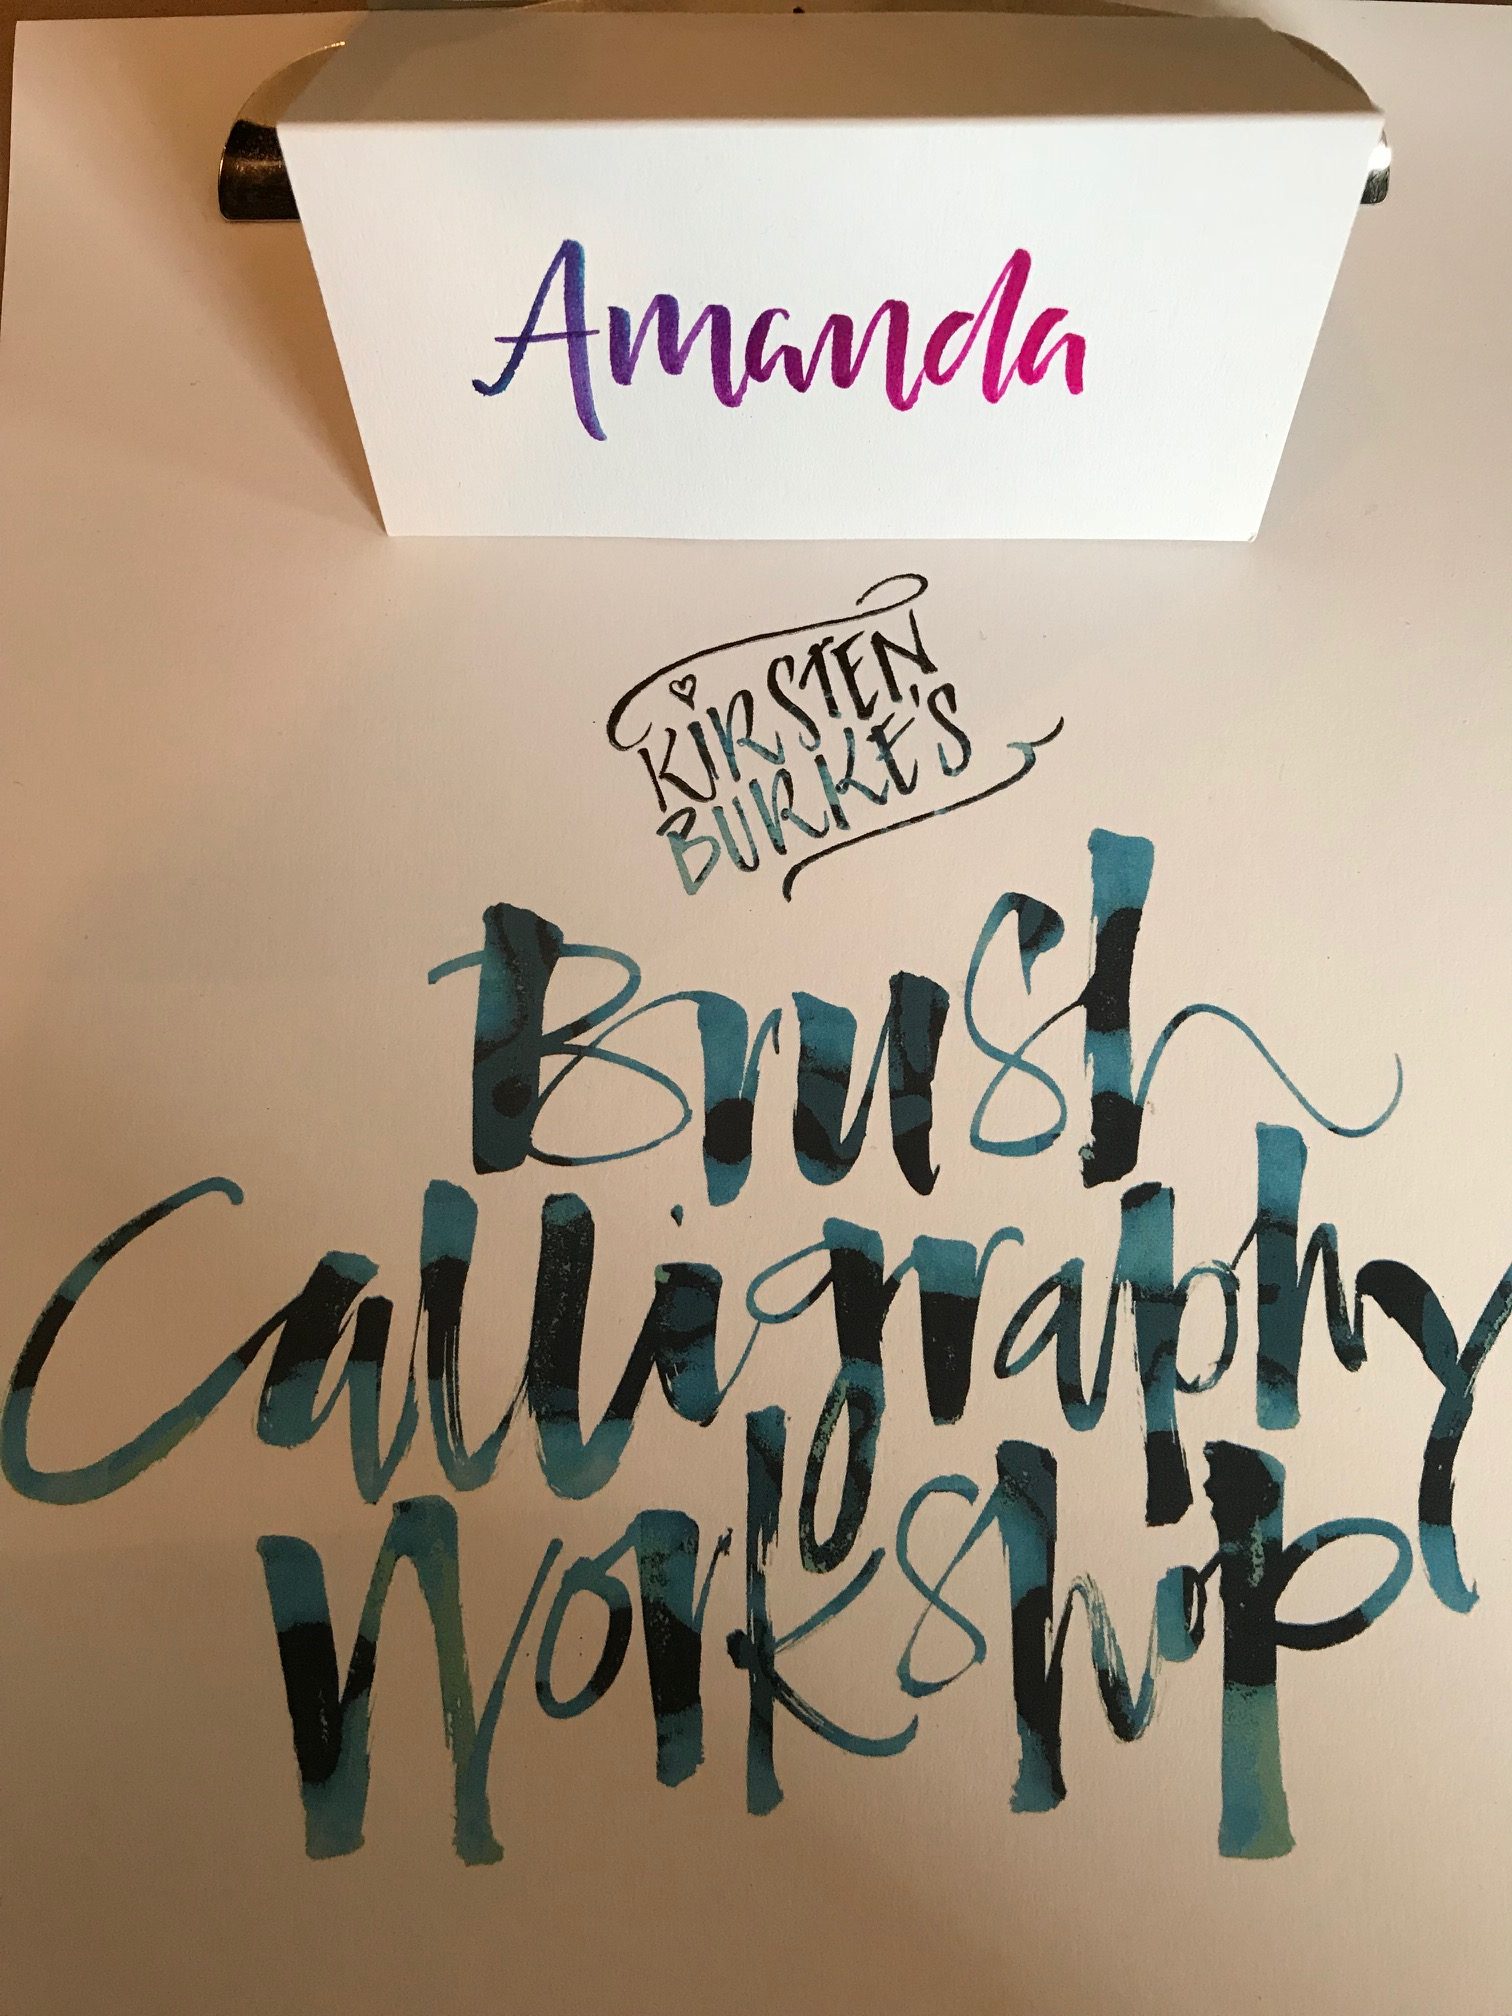 Amanda
KIRSTEN
BURKE'S
Brush
Calligraphy
Workshop